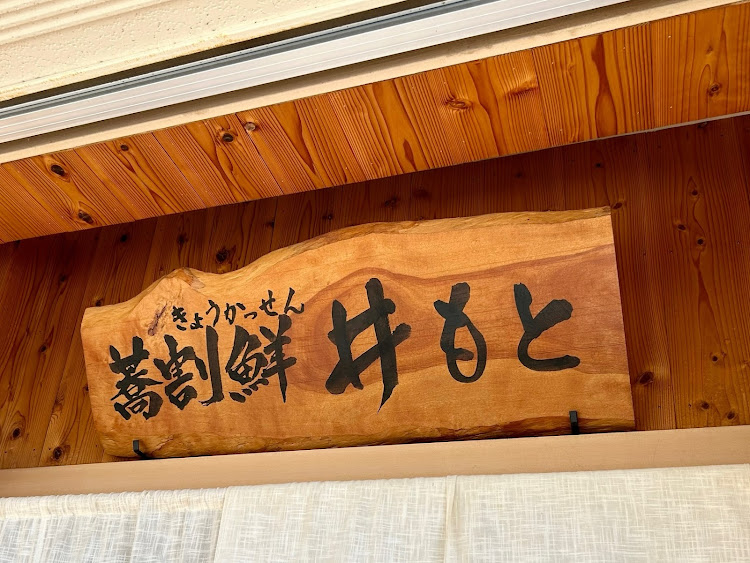 きょうかっせん
蕎割鮮 井もと